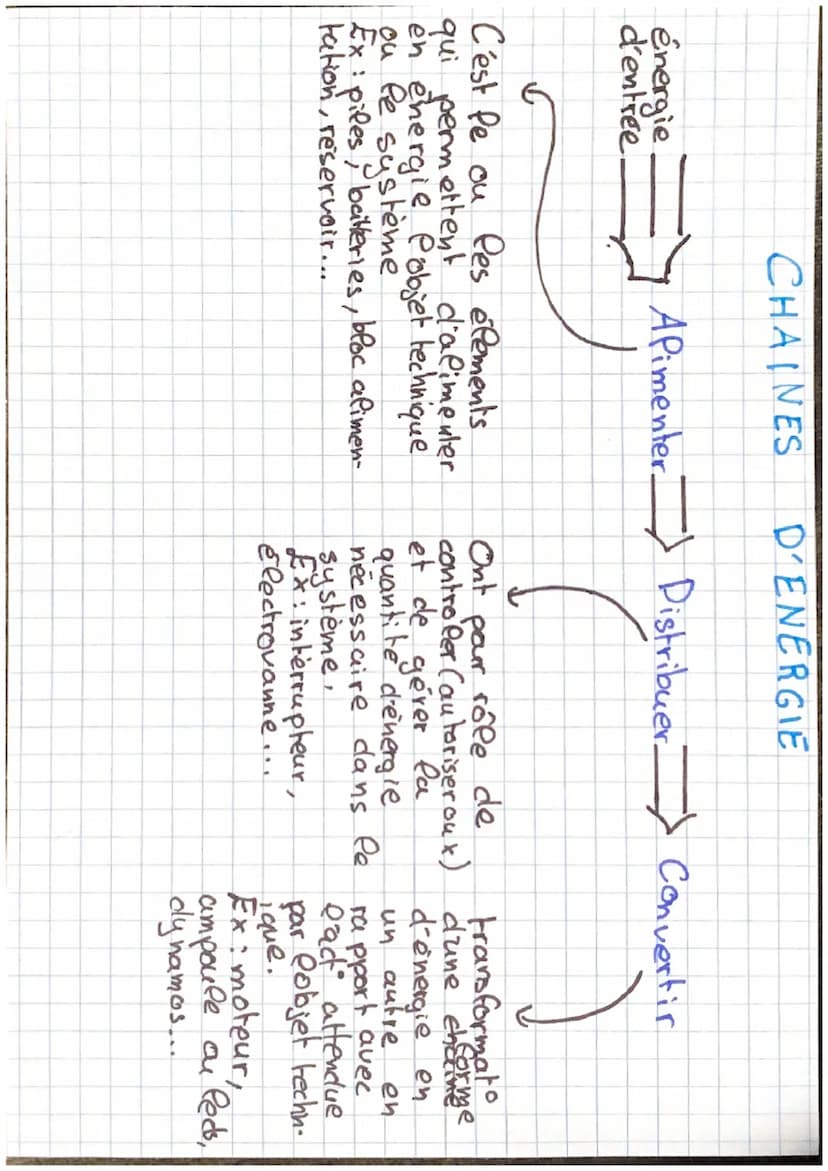 CHAINES D'ENERGIE
énergie
d'entrée
Alimenter
Distribuer
Convertir
C'est le ou les élements
qui permettent d'alimenter
en énergie l'objet technique
ou le système
Ex : piles, batteries, bloc alimen-
tation, réservoir...
Ont pour rôle de
controler (autoriser oux)
et de gérer la
quantité d'énergie
nécessaire dans le
système.
Ex : interrupteur,
électrovanne...
transformat°
d'une forme
d'énergie en
un autre en
rapport avec
l'act° attendue
par l'objet techn-
ique.
Ex : moteur,
ampoule ou leds,
dynamos...